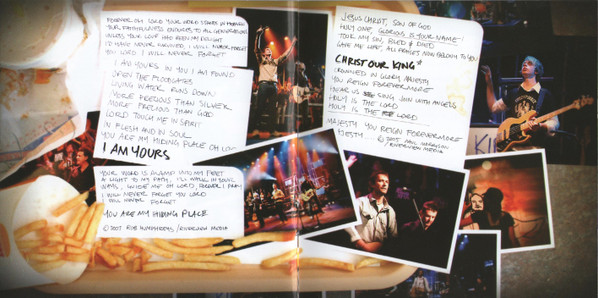 FOREVER OH LORD YOUR WORD STANDS IN HEAVEN
YOUR FAITHFULNESS ENDURES TO ALL GENERATIONS
UNLESS YOUR LOVE HAD BEEN MY DELIGHT
I'D HAVE NEVER SURVIVED, I WILL NEVER FORGET
YOU LORD I WILL NEVER FORGET
I AM YOURS IN YOU I AM FOUND
OPEN THE FLOODGATES
LIVING WATER RUNS DOWN
MORE PRECIOUS THAN SILVER
MORE PRECIOUS THAN GOLD
LORD TOUCH ME IN SPIRIT
IN FLESH AND IN SOUL
YOU ARE MY HIDING PLACE OH LORD
I AM YOURS
YOUR WORD IS A LAMP UNTO MY FEET
A LIGHT TO MY PATH, I'LL WALK IN YOUR
WAYS, GUIDE ME OH LORD, I PRAY
I WILL NEVER FORGET YOU LORD
I WILL NEVER FORGET
YOU ARE MY HIDING PLACE
© 2007 ROB HUMPHREYS / RIVERVIEW MEDIA
JESUS CHRIST, SON OF GOD
HOLY ONE, GLORIOUS IS YOUR NAME
FOR MY SIN, BLED & DIED
GAVE ME LIFE, ALL PRAISES NOW BELONG TO YOU
CHRIST OUR KING
CROWNED IN GLORY, MAJESTY
YOU REIGN FOREVERMORE
HEAR US SING, JOIN WITH ANGELS
HOLY IS THE LORD
HOLY IS THE LORD
MAJESTY YOU REIGN FOREVERMORE
MAJESTY
© 2007 PAUL MORRISON
/ RIVERVIEW MEDIA